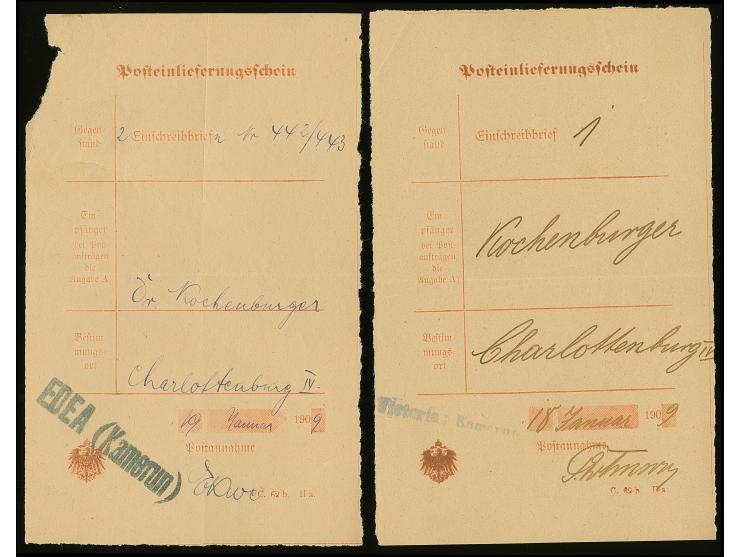 Posteinlieferungsschein
Gegen
stand
2 Einschreibbriefe Nr 442/443
Em
pfänger
bei Post-
aufträgen
die
Angabe A
Dr. Kochenburger
Bestim
mungs-
ort
Charlottenburg IV.
EDEA (Kamerun)
19 Januar 1909
Postannahme
C. 62 b. II a.
Posteinlieferungsschein
Gegen
stand
Einschreibbrief 1
Em
pfänger
bei Post-
aufträgen
die
Angabe A
Kochenburger
Bestim
mungs-
ort
Charlottenburg IV
Victoria; Kamerun
18 Januar 1909
Postannahme
C. 62 b. II a.